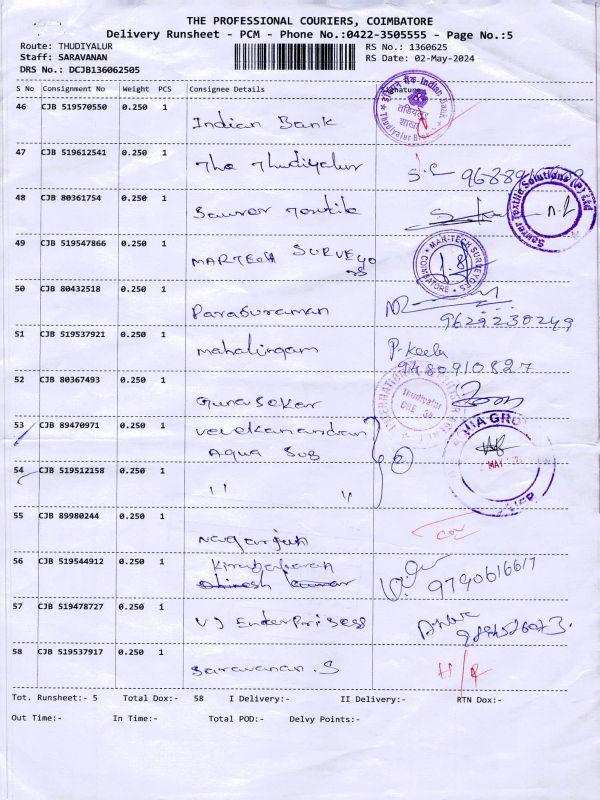 THE PROFESSIONAL COURIERS, COIMBATORE
Delivery Runsheet - PCM - Phone No.:0422-3505555 - Page No.:5
Route: THUDIYALUR
RS No.: 1360625
Staff: SARAVANAN
RS Date: 02-May-2024
DRS No.: DCJB136062505
S No Consignment No Weight PCS Consignee Details Signature
46 CJB 519570550 0.250 1 Indian Bank
इंडियन बैंक Indian Bank
शाखा
Thudiyalur
47 CJB 519612541 0.250 1 The Thudiyalur
48 CJB 80361754 0.250 1
Saurer Textile Solutions (P) Ltd
49 CJB 519547866 0.250 1 MARTECH SURVEYO
RS
MAR-TECH SURVEYORS
COIMBATORE
50 CJB 80432518 0.250 1 Parasuraman
9629230249
51 CJB 519537921 0.250 1 mahalingam
9480910827
52 CJB 80367493 0.250 1 Gunasekar
Thudiyalur
53 CJB 89470971 0.250 1
Aqua Sub
2
54 CJB 519512158 0.250 1 " "
55 CJB 89980244 0.250 1
56 CJB 519544912 0.250 1
9790616617
57 CJB 519478727 0.250 1 VJ EnterPrises
58 CJB 519537917 0.250 1 Saravanan.S
Tot. Runsheet:- 5 Total Dox:- 58 I Delivery:- II Delivery:- RTN Dox:-
Out Time:- In Time:- Total POD:- Delvy Points:-